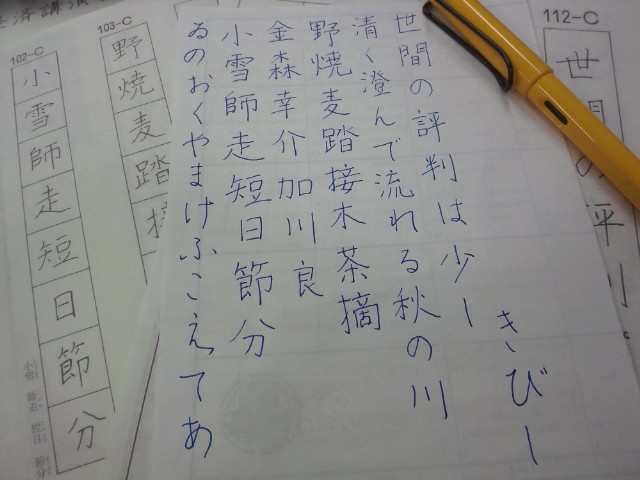 112-C
世間の評判
世間の評判は少し
きびし
清く澄んで流れる秋の川
野焼麦踏接木茶摘
金森幸介加川良
小雪師走短日節分
ゐのおくやまけふこえてあ
103-C
野焼麦踏接
102-C
小雪師走短日節分